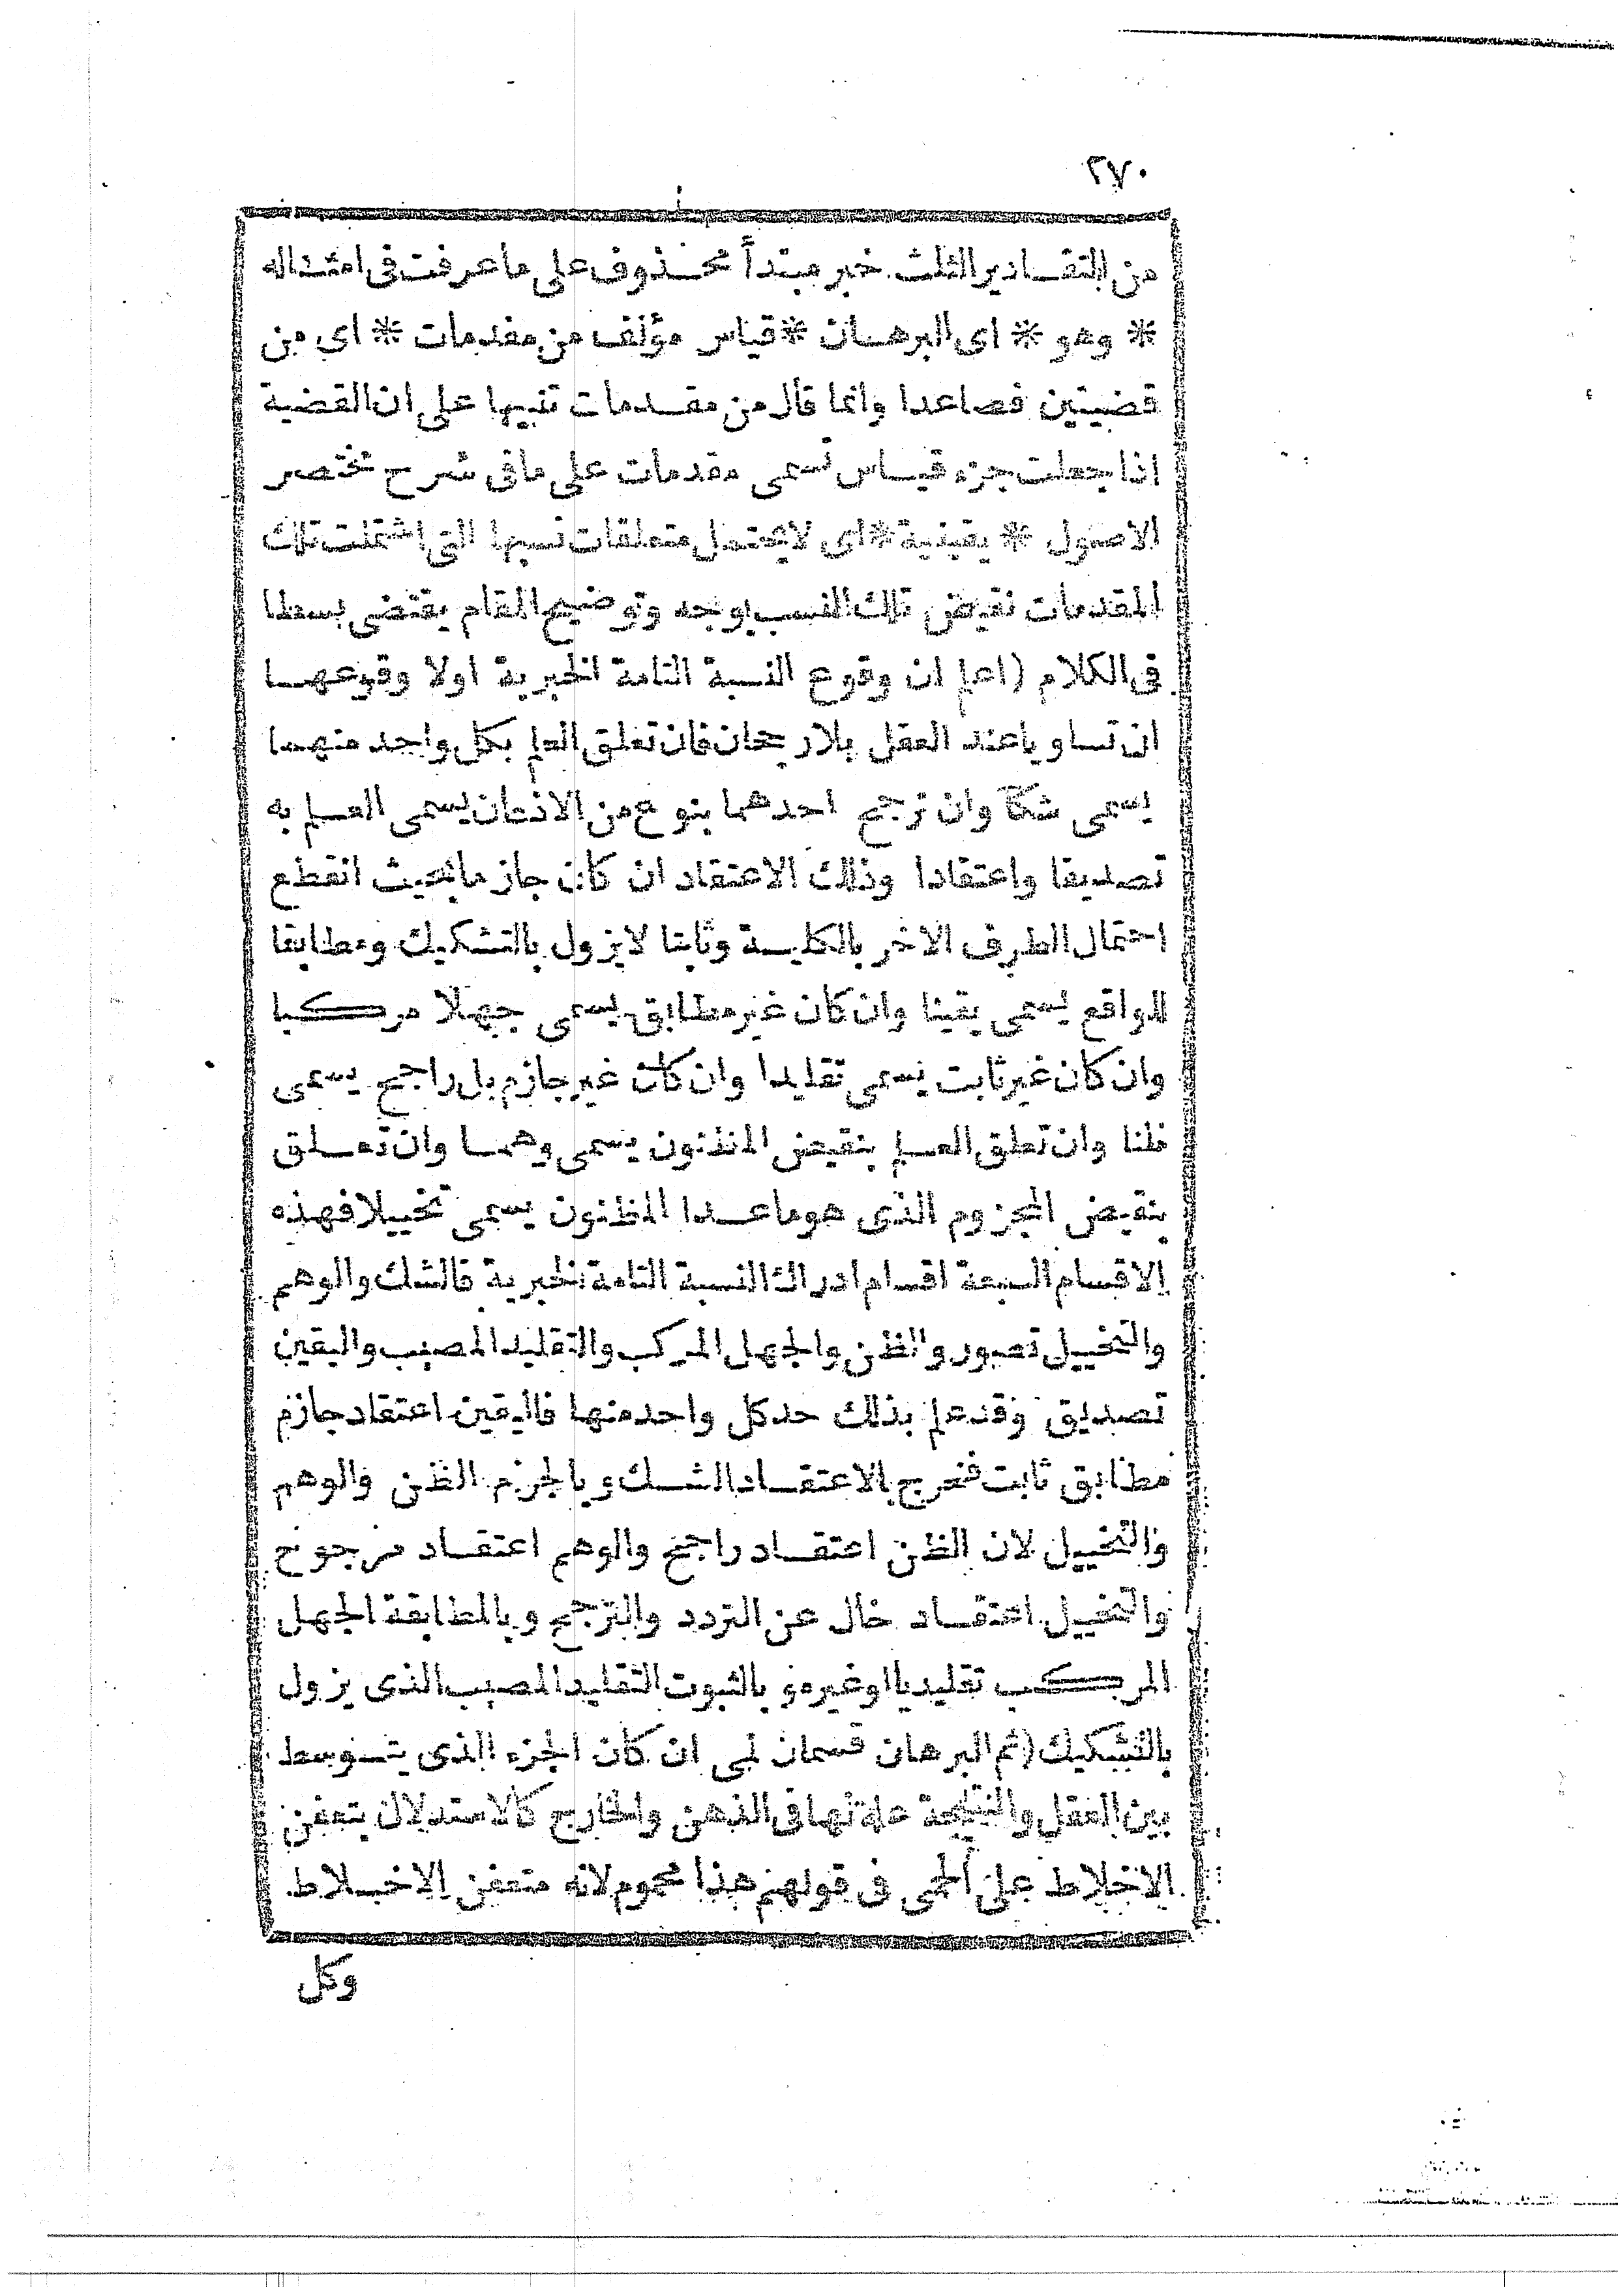 ٢٧٠
من التقادير الثلث خبر مبتدأ محذوف على ما عرفت فى امثاله
* وهو * اى البرهان * قياس مؤلف من مقدمات * اى من
قضيتين فصاعدا وانما قال من مقدمات تنبيها على ان القضية
اذا جعلت جزء قياس تسمى مقدمات على ما فى شرح مختصر
الاصول * يقينية * اى لا يحتمل متعلقات نسبها التى اشتملت تلك
المقدمات نقيض تلك النسب بوجه وتوضيح المقام يقتضى بسطا
فى الكلام (اعلم ان وقوع النسبة التامة الخبرية اولا وقوعها
ان تساويا عند العقل بلا رجحان فان تعلق العلم بكل واحد منهما
يسمى شكا وان ترجح احدهما بنوع من الاذعان يسمى العلم به
تصديقا واعتقادا وذلك الاعتقاد ان كان جازما بحيث انقطع
احتمال الطرف الاخر بالكلية وثابتا لا يزول بالتشكيك ومطابقا
للواقع يسمى يقينا وان كان غير مطابق يسمى جهلا مركبا
وان كان غير ثابت يسمى تقليدا وان كان غير جازم بل راجح يسمى
ظنا وان تعلق العلم بنقيض المظنون يسمى وهما وان تعلق
بنقيض المجزوم الذى هو ما عدا المظنون يسمى تخييلا فهذه
الاقسام السبعة اقسام ادراك النسبة التامة الخبرية فالشك والوهم
والتخييل تصور والظن والجهل المركب والتقليد المصيب واليقين
تصديق وقد علم بذلك حد كل واحد منها فاليقين اعتقاد جازم
مطابق ثابت فخرج بالاعتقاد الشك وبالجزم الظن والوهم
والتخييل لان الظن اعتقاد راجح والوهم اعتقاد مرجوح
والتخييل اعتقاد خال عن التردد والترجح وبالمطابقة الجهل
المركب تقليديا اوغيره وبالثبوت التقليد المصيب الذى يزول
بالتشكيك (ثم البرهان قسمان لمى ان كان الجزء الذى يتوسط
بين العقل والنتيجة علة لها فى الذهن والخارج كالاستدلال بتعفن
الاخلاط على الحمى فى قولهم هذا محموم لانه متعفن الاخلاط
وكل